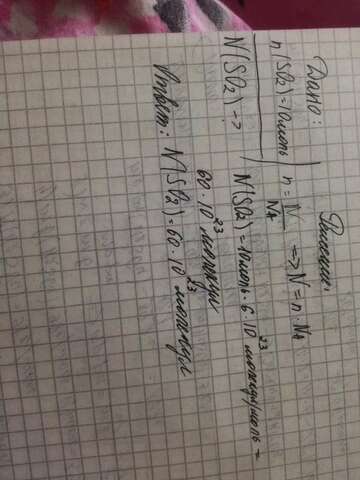 Дано:
n(SO₂)=10моль
N(SO₂)-?
Решение:
n = N/Nₐ => N = n · Nₐ
N(SO₂) = 10моль · 6 · 10²³ молекул/моль =
60 · 10²³ молекул
Ответ: N(SO₂) = 60 · 10²³ молекул